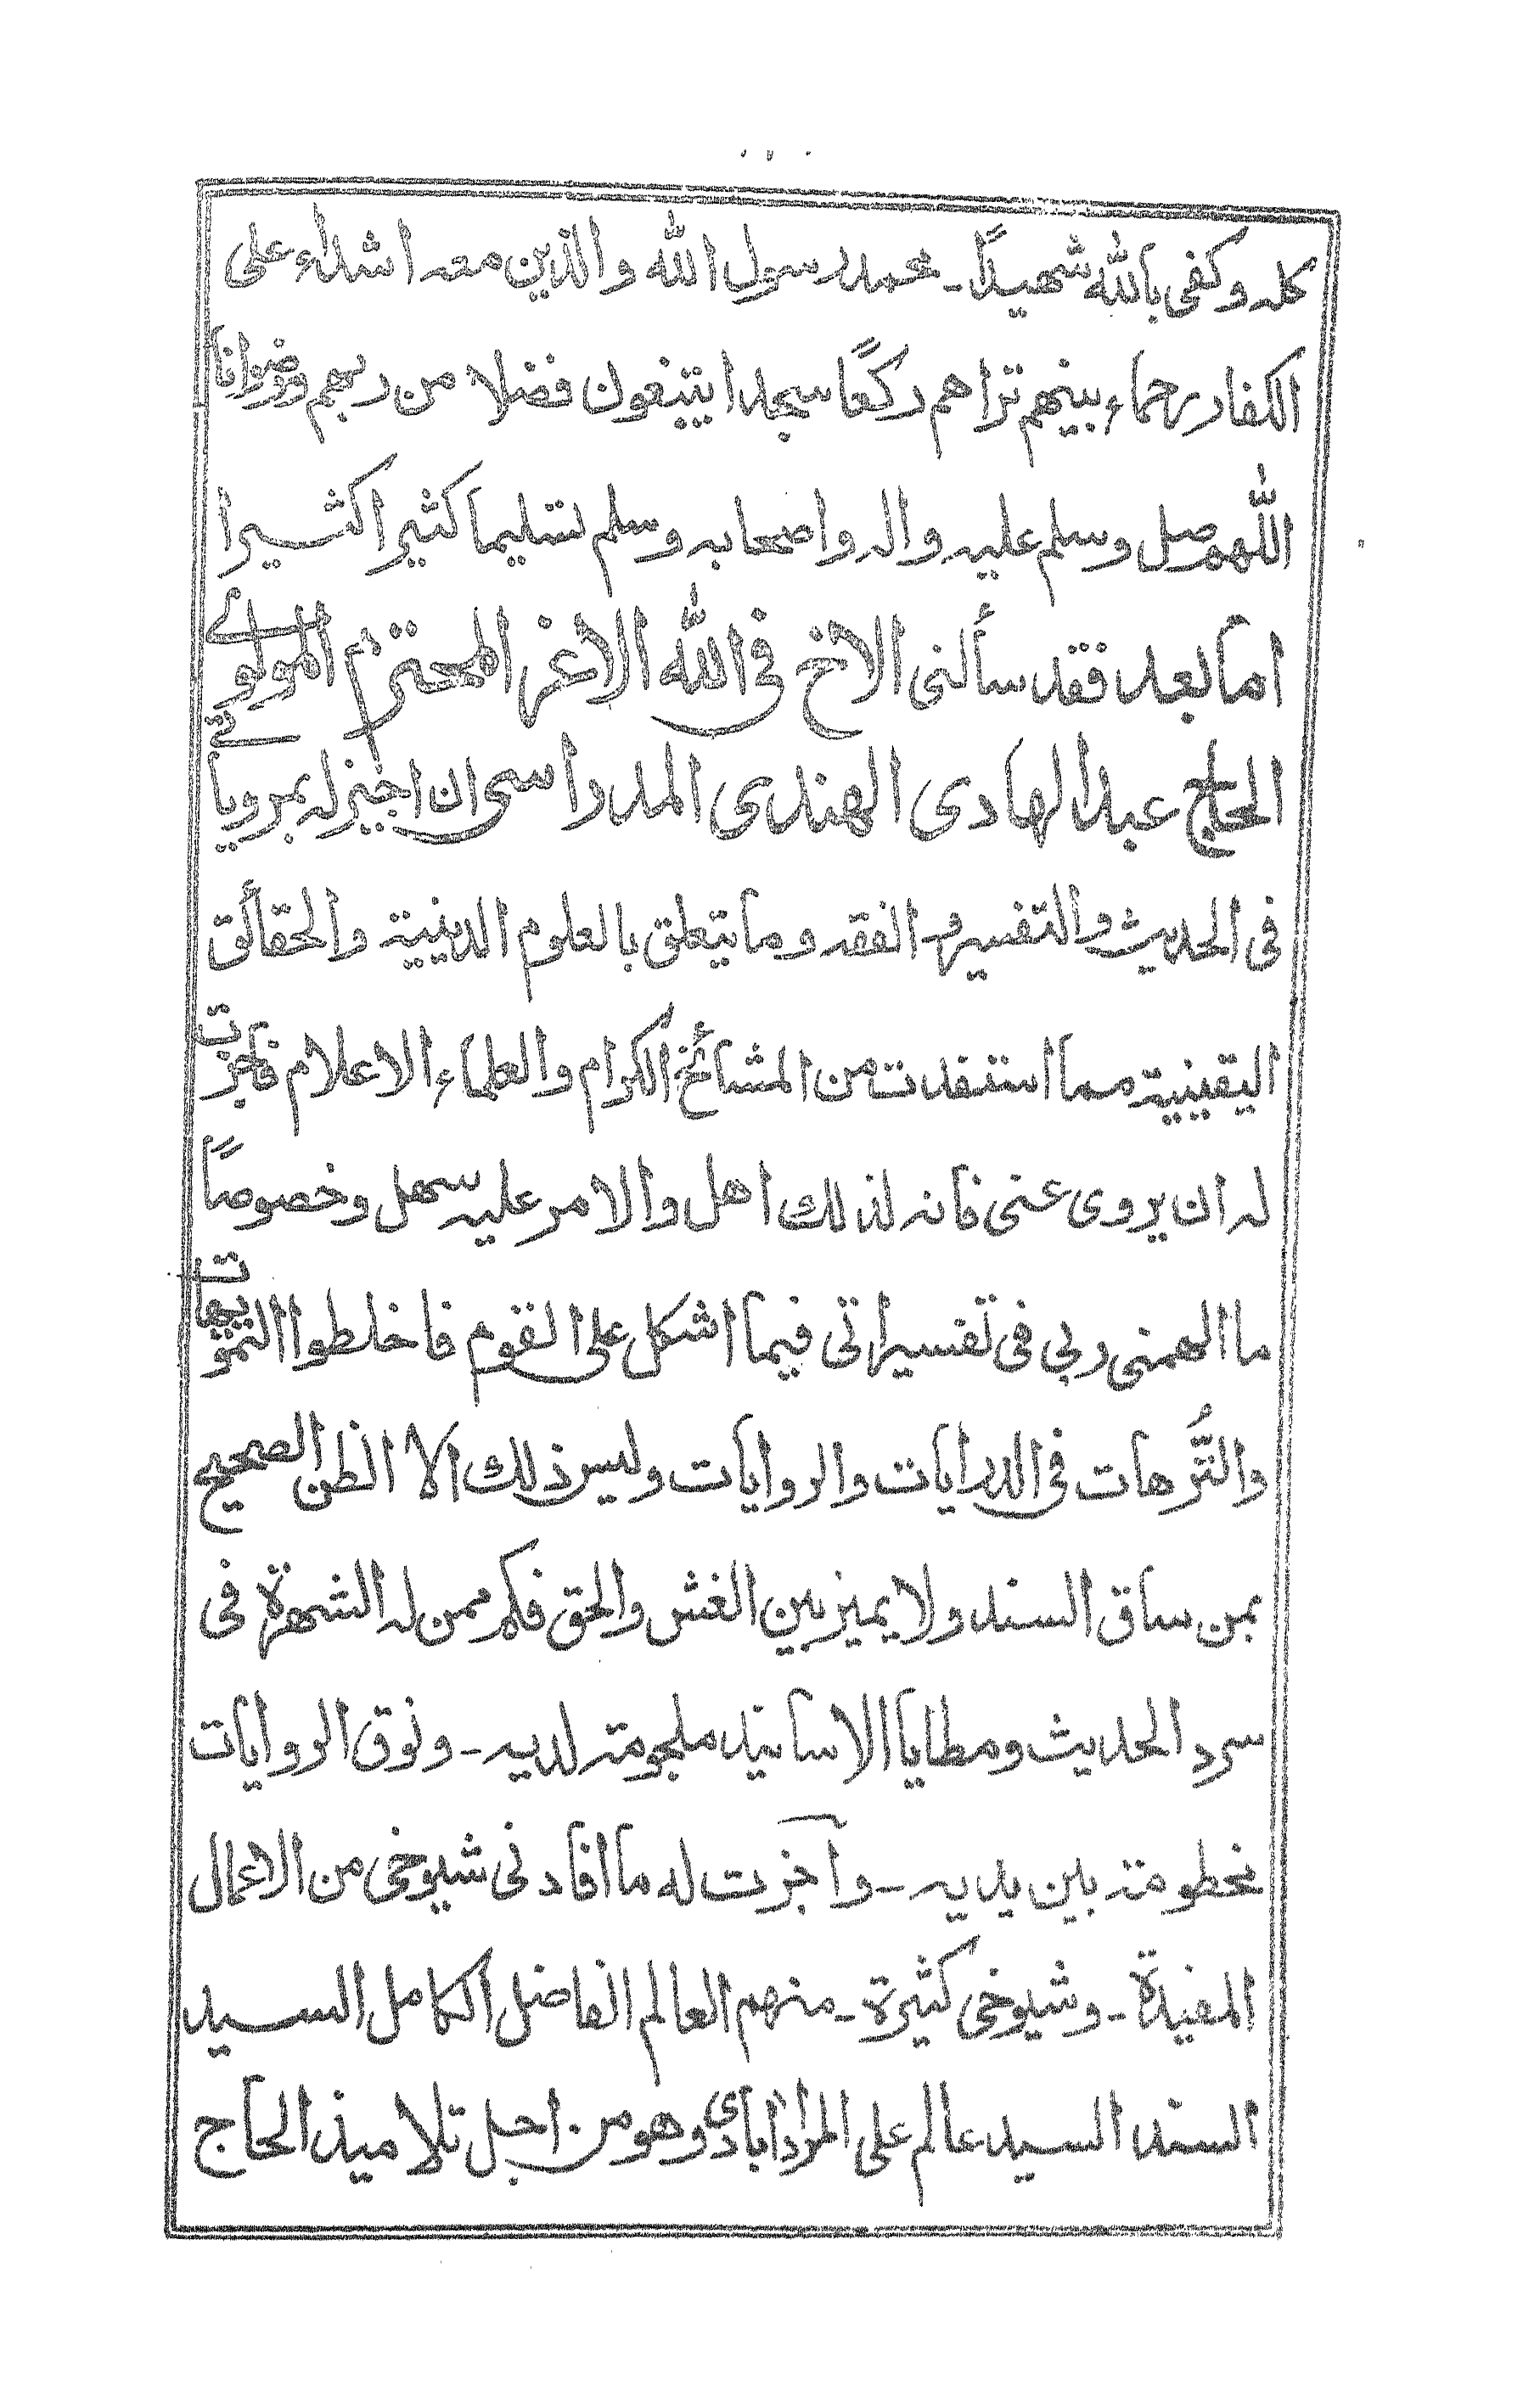 كله وكفى بالله شهيداً ـ محمد رسول الله والذين معه اشداء على
الكفار رحماء بينهم تراهم ركعًا سجدا يبتغون فضلا من ربهم ورضوانا
اللهم صل وسلم عليه واله واصحابه وسلم تسليما كثيرا كثيرا
اما بعد فقد سألنى الاخ فى الله الاغر المحترم المولوى
الحاج عبد الهادى الهندى المدراسى ان اجيز له بمروياتى
فى الحديث والتفسير والفقه وما يتعلق بالعلوم الدينية والحقائق
اليقينية مما استفدت من المشائخ الكرام والعلماء الاعلام فاجزت
له ان يروى عنى فانه لذلك اهل والامر عليه سهل وخصوصاً
ما الهمنى ربى فى تفسيراتى فيما اشكل على القوم فاخلطوا التمويهات
والتُّرهات فى الدرايات والروايات وليس ذلك الا الظن الصحيح
بمن ساق السند ولا يميز بين الغش والحق فكم ممن له الشهرة فى
سرد الحديث ومطايا الاسانيد ملجومة لديه ـ ونوق الروايات
مخطومة بين يديه ـ وآجزت له ما افادنى شيوخى من الاعمال
المفيدة ـ وشيوخى كثيرة ـ منهم العالم الفاضل الكامل السيد
السند السيد عالم على المرادابادى وهو من اجل تلاميذ الحاج